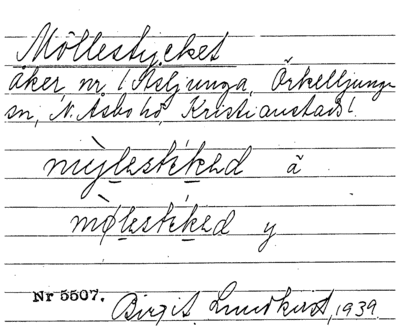 Möllestycket
åker, nr 1 Åsljunga, Örkelljunga
sn, N. Åsbo hd, Kristianstads l.
mỳlestékəd ä
mø̀lestékəd y
Nr 5507. Birgit Lundkvist, 1939